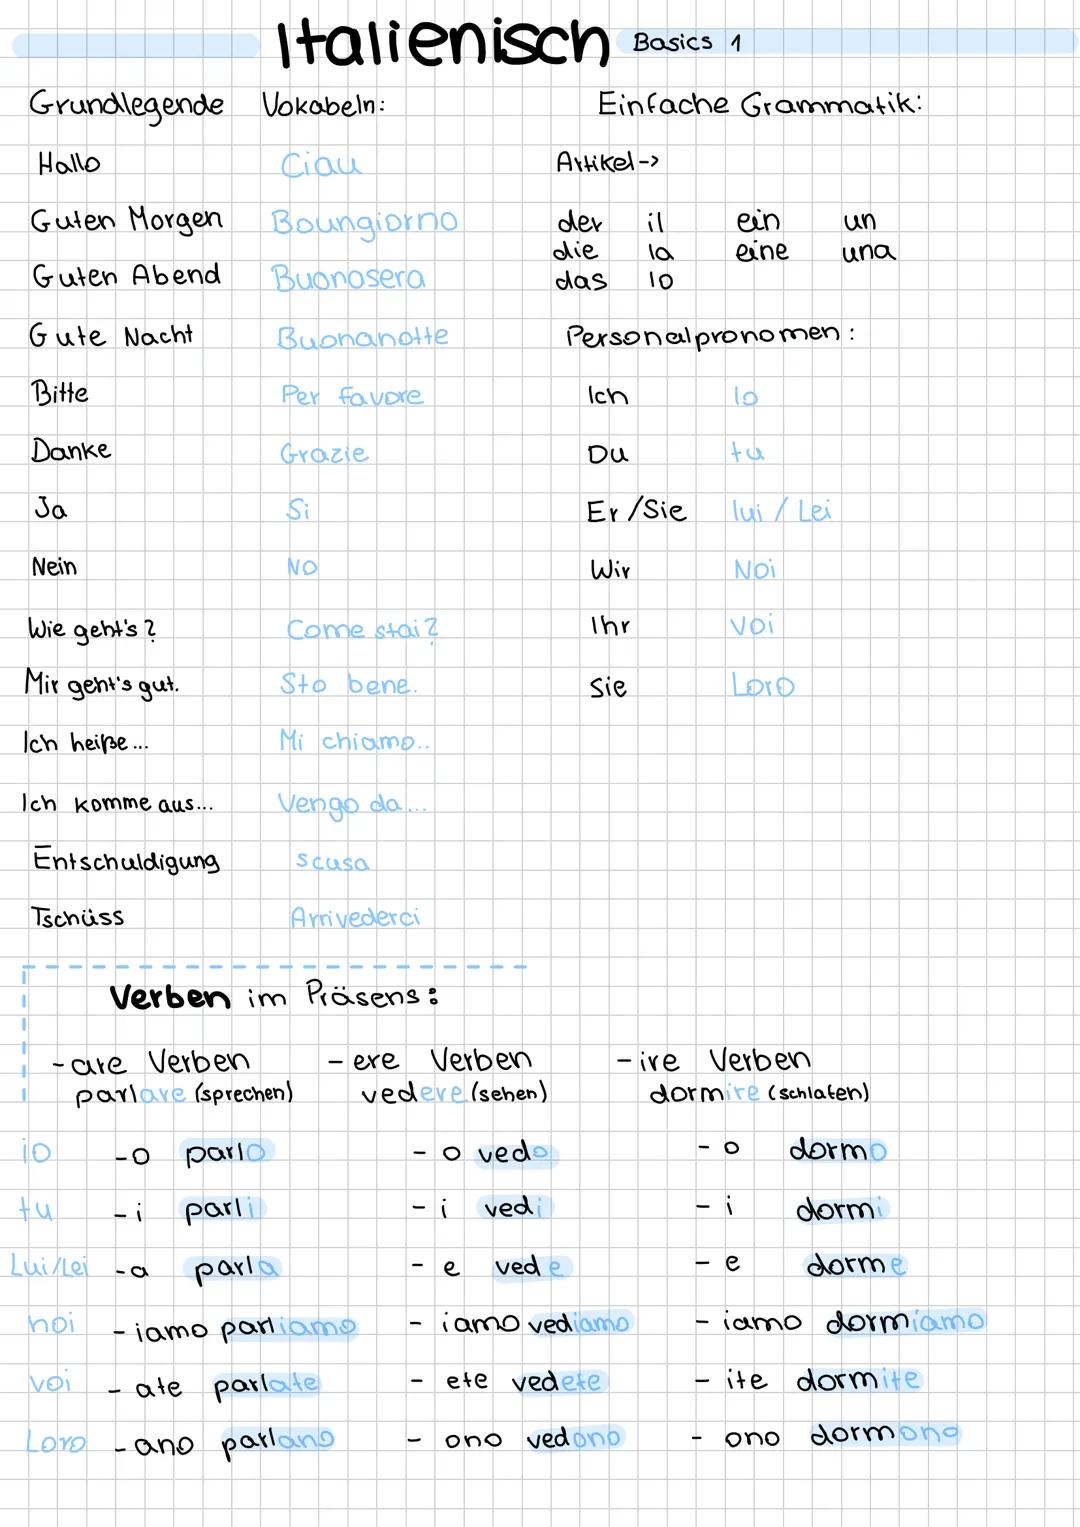 Italienisch Basics 1
Grundlegende Vokabeln:
Hallo Ciau
Guten Morgen Boungiorno
Guten Abend Buonosera
Gute Nacht Buonanotte
Bitte Per favore
Danke Grazie
Ja Si
Nein NO
Wie geht's? Come stai?
Mir geht's gut. Sto bene.
Ich heiße... Mi chiamo..
Ich komme aus... Vengo da...
Entschuldigung scusa
Tschüss Arrivederci
Einfache Grammatik:
Artikel->
der il ein un
die la eine una
das lo
Personalpronomen:
Ich Io
Du tu
Er/Sie lui / Lei
Wir Noi
Ihr voi
Sie Loro
Verben im Präsens:
-are Verben -ere Verben -ire Verben
parlare (sprechen) vedere (sehen) dormire (schlafen)
io -o parlo -o vedo -o dormo
tu -i parli -i vedi -i dormi
Lui/Lei -a parla -e vede -e dorme
noi -iamo parliamo -iamo vediamo -iamo dormiamo
voi -ate parlate -ete vedete -ite dormite
Loro -ano parlano -ono vedono -ono dormono